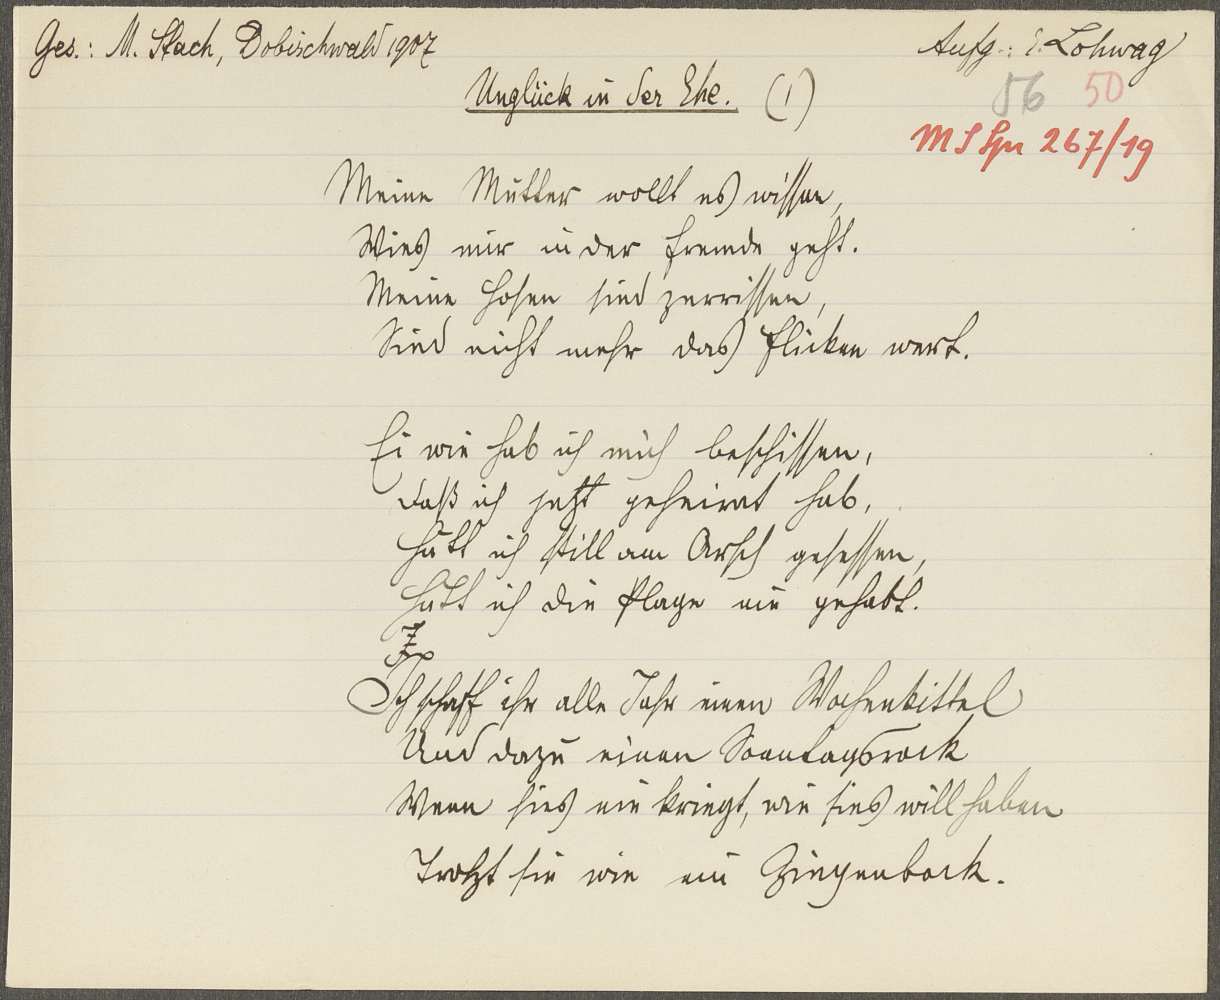 Ges.: M. Stach, Dobischwald 1907
Aufg.: E. Lohwag
Unglück in der Ehe. (1)
56 50
MS Spr 267/19
Meine Mutter wollt es wissen,
Wies mir in der Fremde geht.
Meine Hosen sind zerrissen,
Sind nicht mehr das Flicken wert.
Ei wie hab ich mich beschissen,
Daß ich jetzt geheirat hab,
Hätt ich still am Arsch gesessen,
Hätt ich die Plage nie gehabt.
Ich schaff ihr alle Jahr einen Wochenkittel
Und dazu einen Sonntagsrock
Wenn sies nie kriegt, wie sies will haben
Trotzt sie wie ein Ziegenbock.